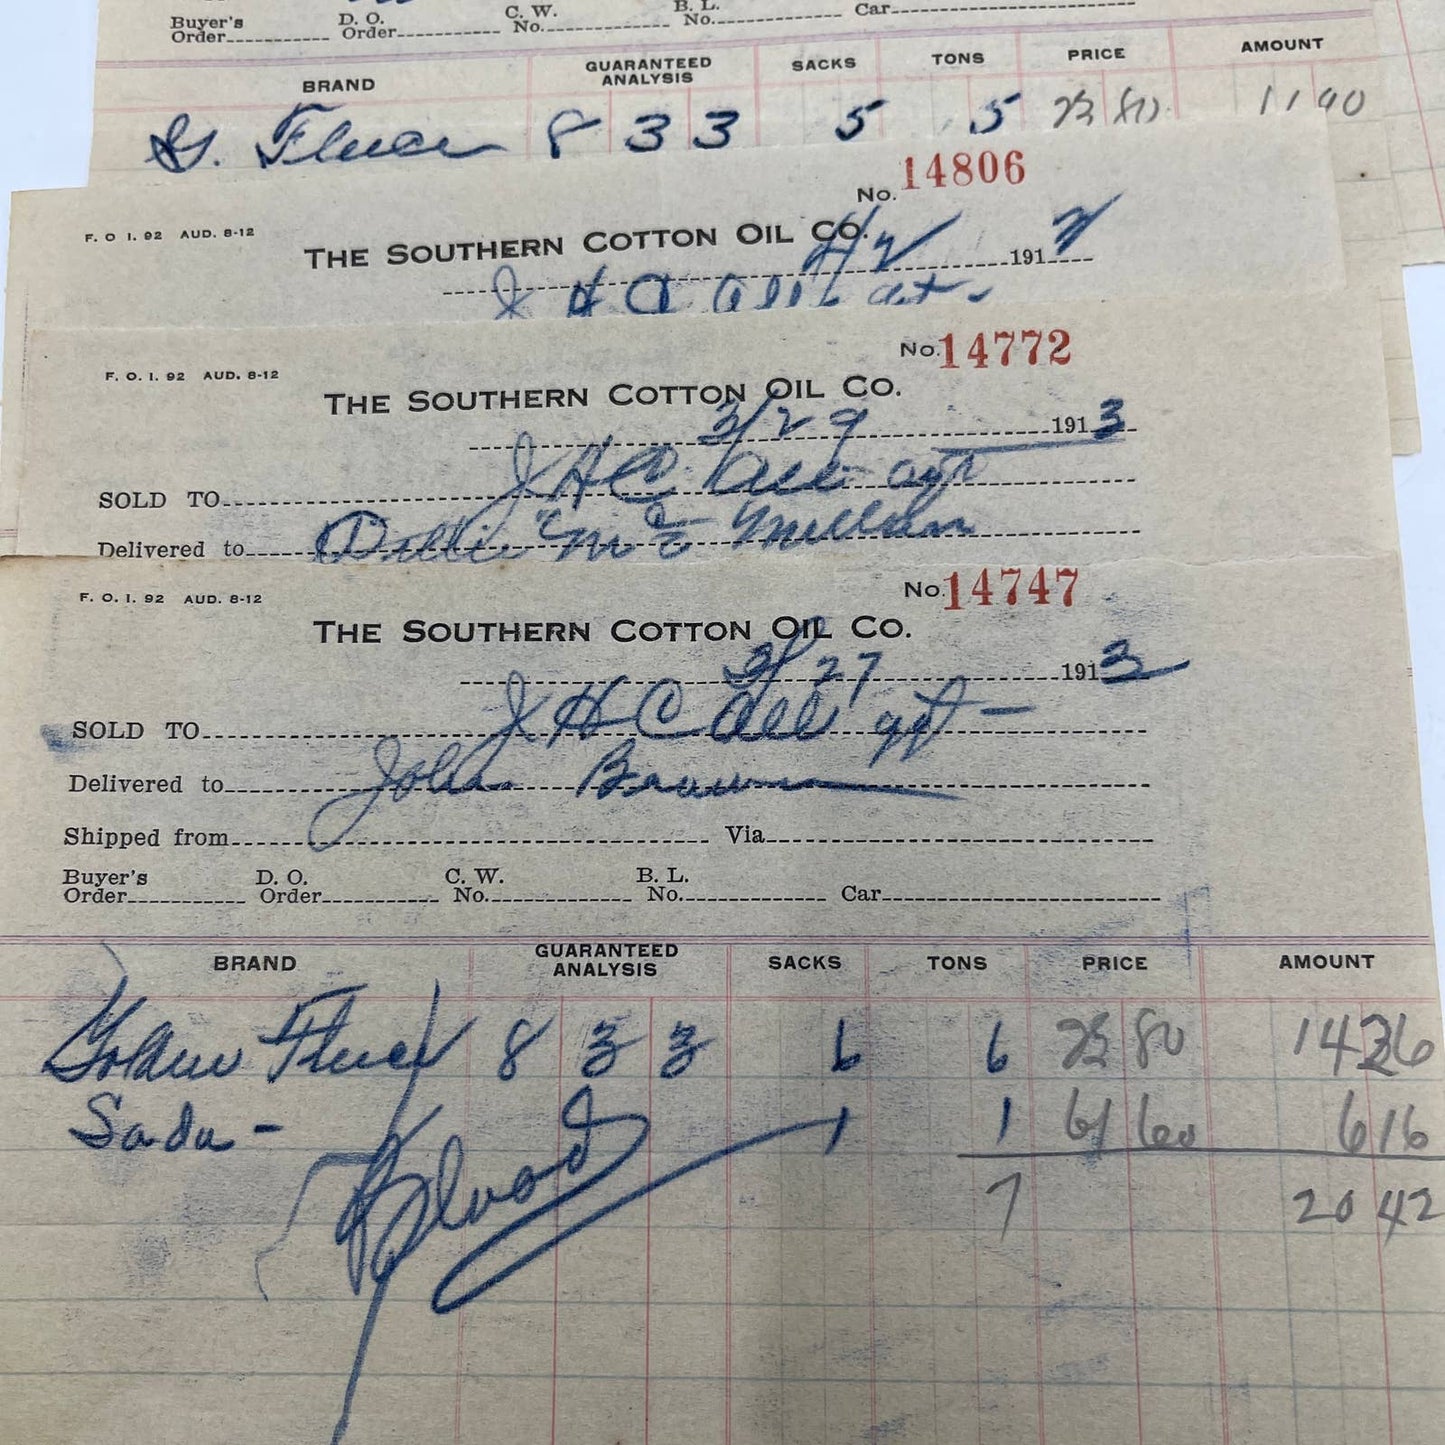 Buyer's Order D. O. Order C. W. No. B. L. No. Car
BRAND GUARANTEED ANALYSIS SACKS TONS PRICE AMOUNT
8 3 3 5 5 23 80 11 90
No. 14806
F. O I. 92 AUD. 8-12
THE SOUTHERN COTTON OIL CO.
4/2 191
J H C
No. 14772
F. O. I. 92 AUD. 8-12
THE SOUTHERN COTTON OIL CO.
3/29 1913
SOLD TO J H C
Delivered to
No. 14747
F. O. I. 92 AUD. 8-12
THE SOUTHERN COTTON OIL CO.
3/27 1913
SOLD TO J H C
Delivered to John Brown
Shipped from Via
Buyer's Order D. O. Order C. W. No. B. L. No. Car
BRAND GUARANTEED ANALYSIS SACKS TONS PRICE AMOUNT
Golden 8 3 3 6 6 23 80 14 26
Soda - 1 1 61 60 6 16
7 20 42